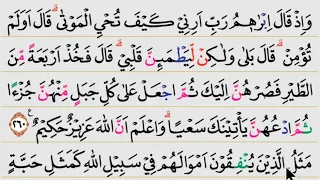 وَاِذْ قَالَ اِبْرٰهٖمُ رَبِّ اَرِنِيْ كَيْفَ تُحْيِ الْمَوْتٰىۗ قَالَ اَوَلَمْ
تُؤْمِنْۗ قَالَ بَلٰى وَلٰكِنْ لِّيَطْمَىِٕنَّ قَلْبِيْۗ قَالَ فَخُذْ اَرْبَعَةً مِّنَ
الطَّيْرِ فَصُرْهُنَّ اِلَيْكَ ثُمَّ اجْعَلْ عَلٰى كُلِّ جَبَلٍ مِّنْهُنَّ جُزْءًا
ثُمَّ ادْعُهُنَّ يَأْتِيْنَكَ سَعْيًاۗ وَاعْلَمْ اَنَّ اللّٰهَ عَزِيْزٌ حَكِيْمٌ ࣖ ٢٦٠
مَثَلُ الَّذِيْنَ يُنْفِقُوْنَ اَمْوَالَهُمْ فِيْ سَبِيْلِ اللّٰهِ كَمَثَلِ حَبَّةٍ